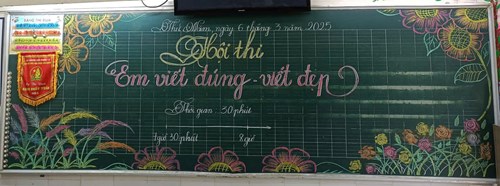 Thứ Năm, ngày 6 tháng 3 năm 2025
Hội thi
Em viết đúng - viết đẹp
Thời gian 30 phút
7 giờ 30 phút 8 giờ